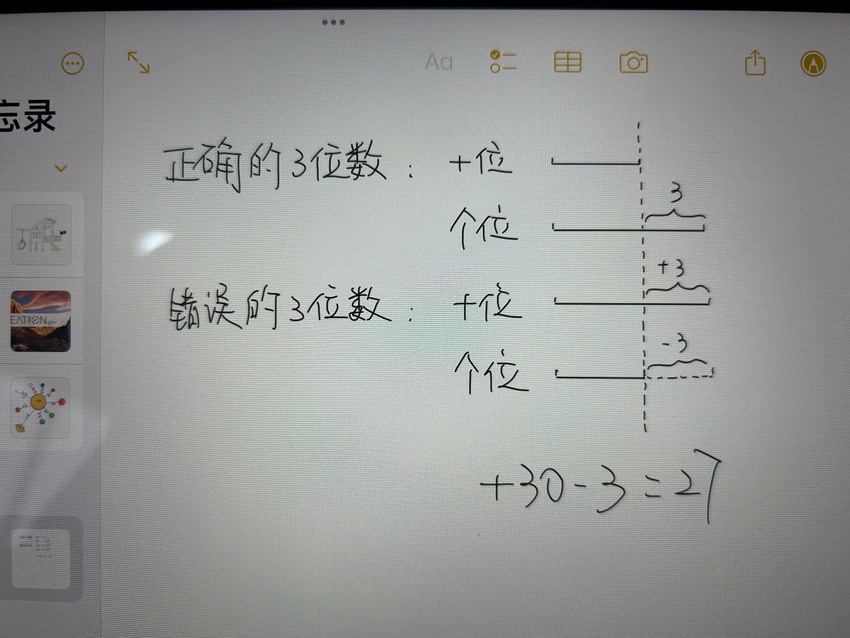 Aa
忘录
正确的3位数： 十位
3
个位
+3
错误的3位数： 十位
-3
个位
+30-3=27